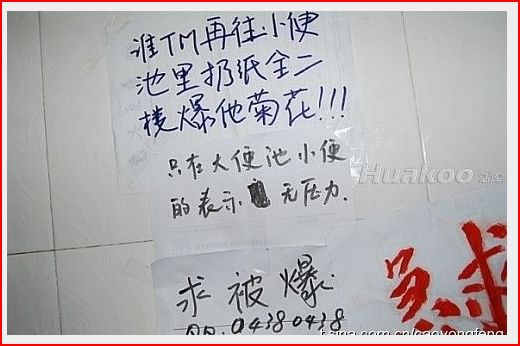 谁TM再往小便
池里扔纸全二
楼爆他菊花!!!
只在大便池小便
的表示 无压力.
Huakoo
求被爆.
QQ.04380438
求
t.sina.com.cn/caoyongfeng